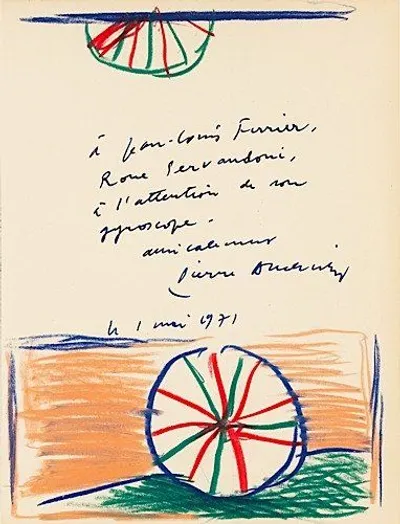 à Jean-Louis Ferrier,
Roue Servandoni,
à l'attention de son
gyroscope.
amicalement
Pierre Alechinsky
le 1 mai 1971